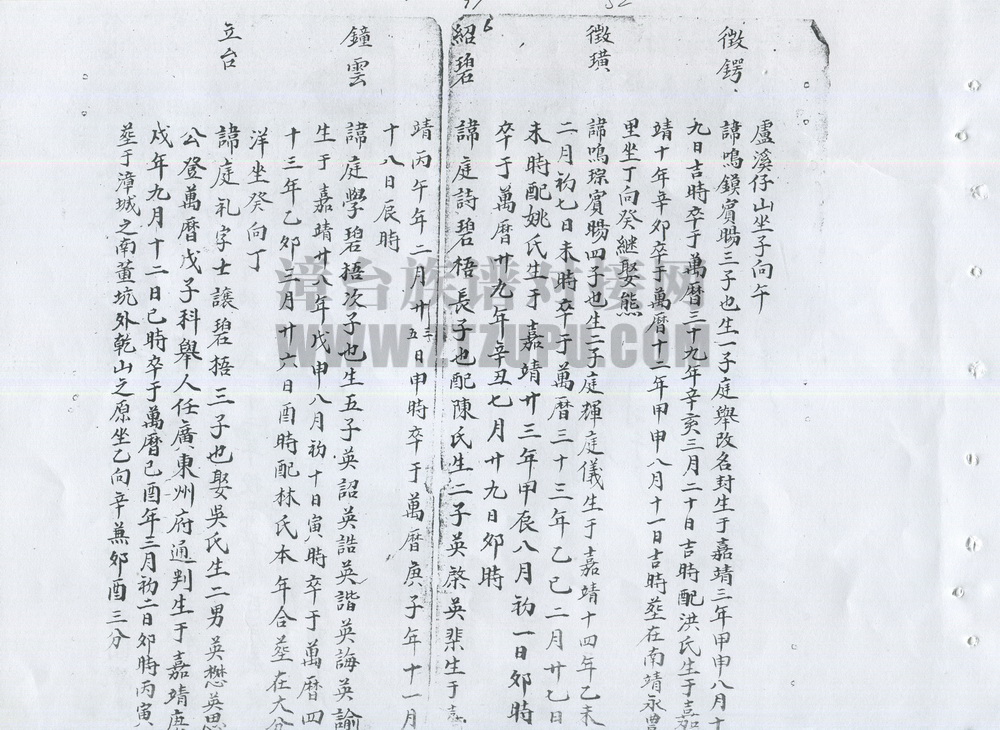 盧溪仔山坐子向午
徵鍔
諱鳴鏌賓暘三子也生一子庭舉改名封生于嘉靖三年甲申八月十
九日吉時卒于萬曆三十九年辛亥三月二十日吉時配洪氏生于嘉
靖十年辛卯卒于萬曆十二年甲申八月十一日吉時塟在南靖永豊
里坐丁向癸繼娶熊
徵璜
諱鳴琮賓暘四子也生二子庭輝庭儀生于嘉靖十四年乙未
二月初七日未時卒于萬曆三十三年乙巳二月廿七日
未時配姚氏生于嘉靖廿三年甲辰八月初一日卯時
卒于萬曆廿九年辛丑七月廿九日卯時
紹碧
諱庭詩碧梧長子也配陳氏生二子英棨英棐生于嘉
靖丙午年二月廿五日申時卒于萬曆庚子年十一月
十八日辰時
鐘雲
諱庭學碧梧次子也生五子英詔英誥英諧英誨英諭
生于嘉靖廿八年戊申八月初十日寅時卒于萬曆四
十三年乙卯三月廿六日酉時配林氏本年合塟在大
洋坐癸向丁
立台
諱庭礼字士讓碧梧三子也娶吳氏生二男英懋英思
公登萬曆戊子科舉人任廣東州府通判生于嘉靖庚
戌年九月十二日巳時卒于萬曆己酉年三月初二日卯時丙寅
塟于漳城之南董坑外乾山之原坐乙向辛兼卯酉三分
漳台族谱对接网
WWW.ZTZUPU.COM